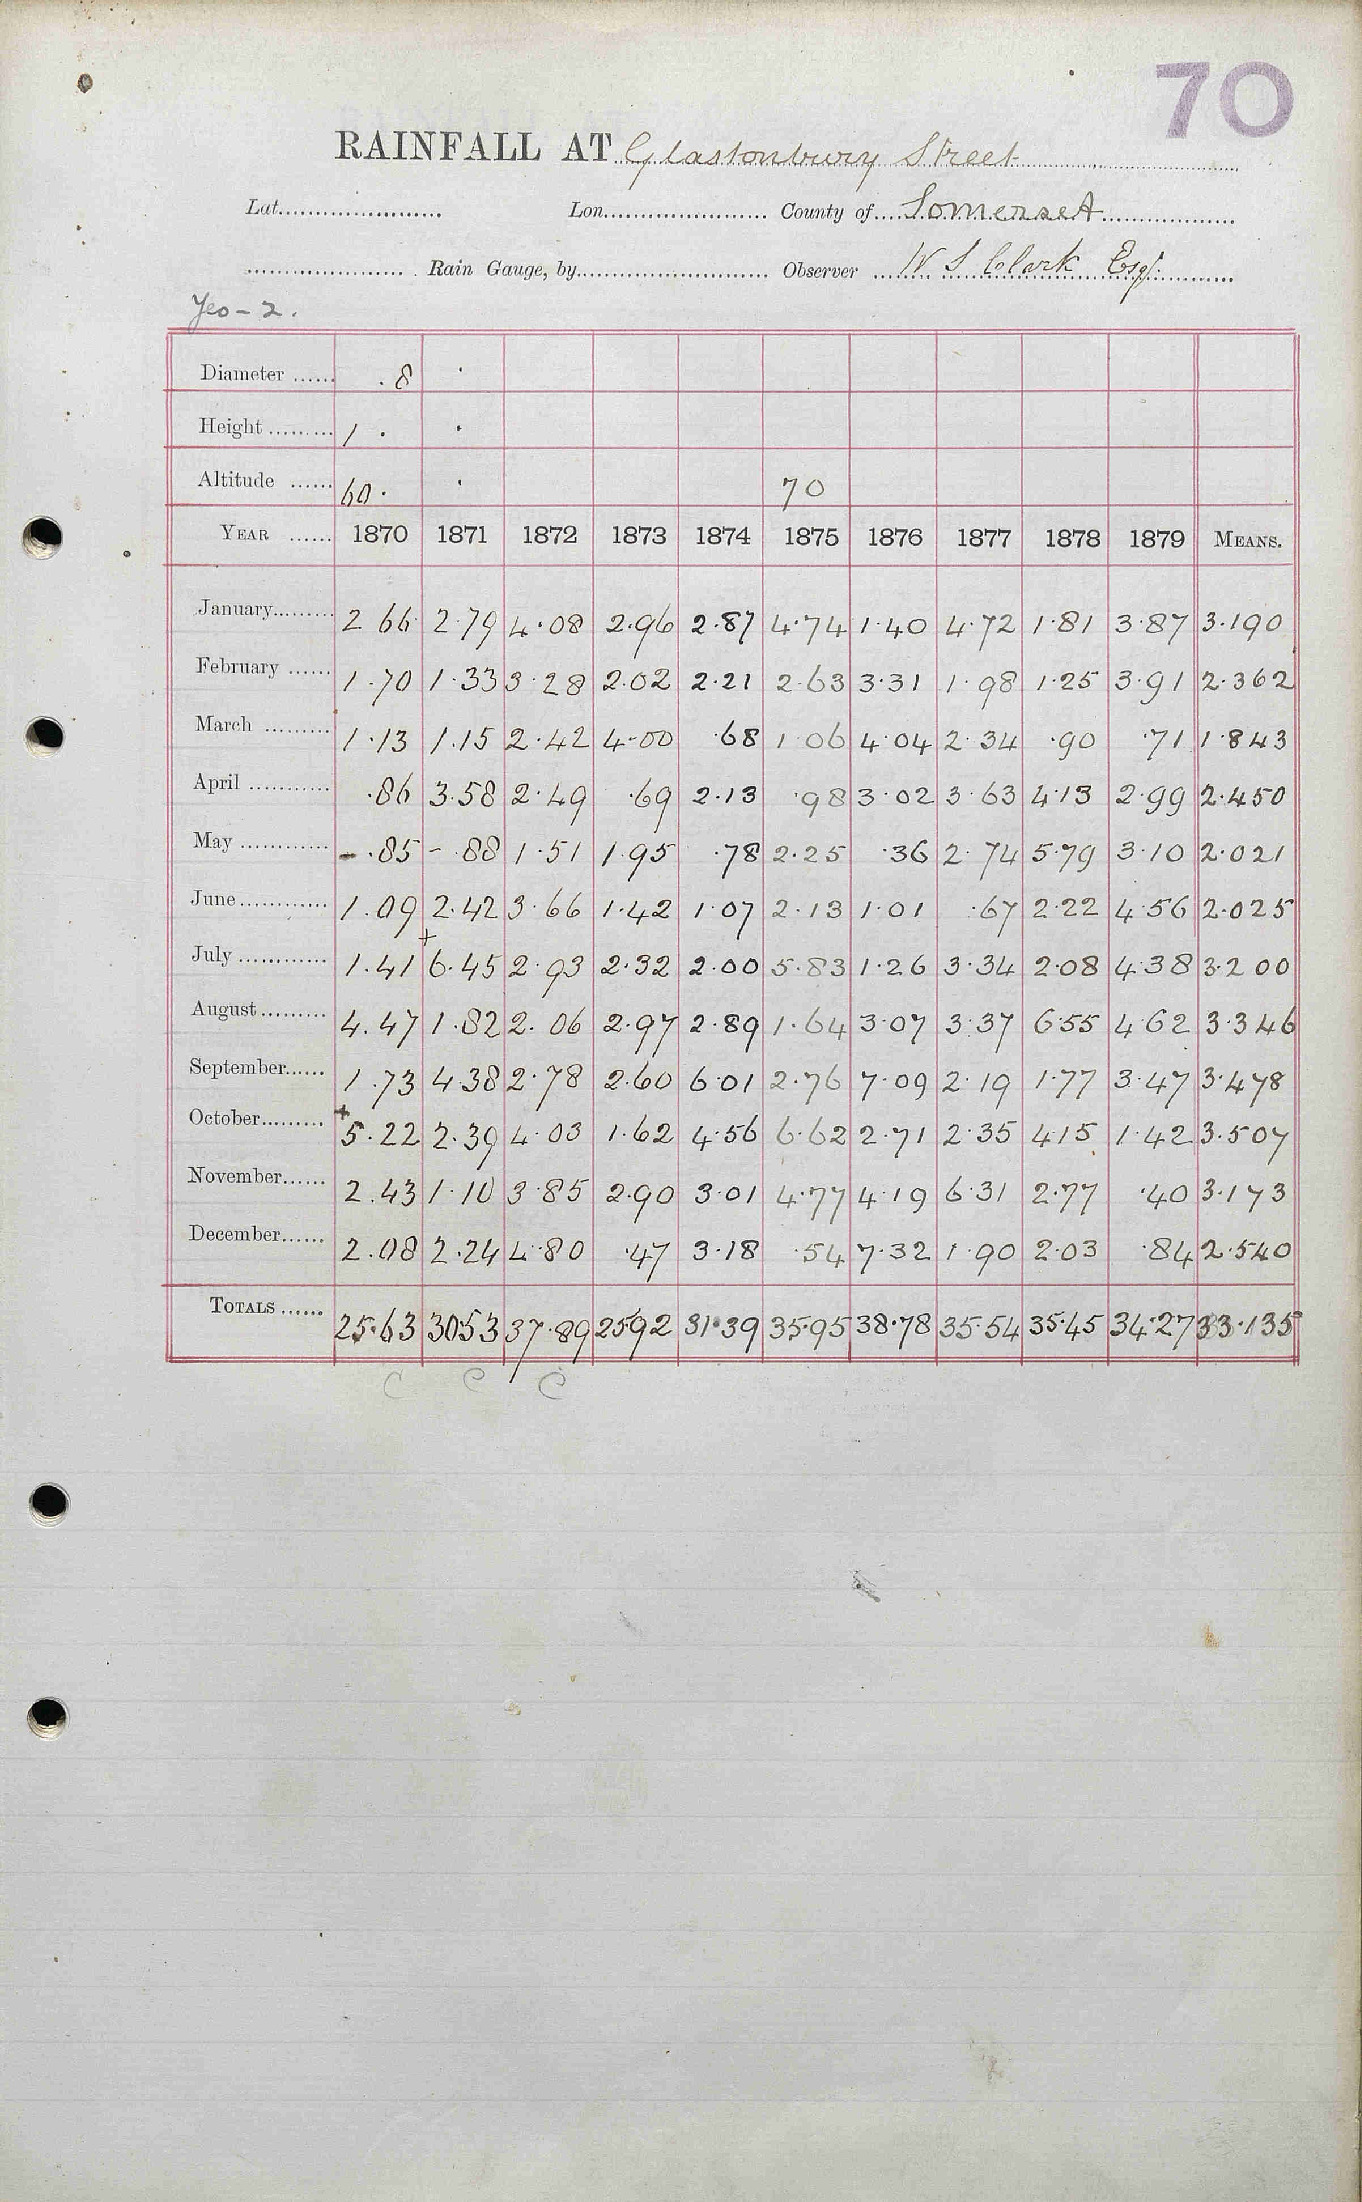 70
RAINFALL AT Glastonbury Street
Lat. Lon. County of Somerset
Rain Gauge, by Observer W S Clark Esqr.
Yeo - 2.
Diameter ...... .8 .
Height ......... 1 . .
Altitude ...... 60. . 70
YEAR ...... 1870 1871 1872 1873 1874 1875 1876 1877 1878 1879 MEANS.
January......... 2 66 2.79 4.08 2.96 2.87 4.74 1.40 4.72 1.81 3.87 3.190
February ...... 1.70 1.33 3.28 2.02 2.21 2.63 3.31 1.98 1.25 3.91 2.362
March ......... 1.13 1.15 2.42 4.00 .68 1 06 4.04 2.34 .90 .71 1.843
April ........... .86 3.58 2.49 .69 2.13 .98 3.02 3.63 4.13 2.99 2.450
May ............ - .85 - .88 1.51 1.95 .78 2.25 .36 2.74 5.79 3.10 2.021
June............ 1.09 2.42 3.66 1.42 1.07 2.13 1.01 .67 2.22 4.56 2.025
July ............ 1.41 + 6.45 2.93 2.32 2.00 5.83 1.26 3.34 2.08 4.38 3.200
August......... 4.47 1.82 2.06 2.97 2.89 1.64 3.07 3.37 6.55 4.62 3.346
September...... 1.73 4.38 2.78 2.60 6.01 2.76 7.09 2.19 1.77 3.47 3.478
October......... + 5.22 2.39 4.03 1.62 4.56 6.62 2.71 2.35 4.15 1.42 3.507
November...... 2.43 1.10 3.85 2.90 3.01 4.77 4.19 6.31 2.77 .40 3.173
December...... 2.08 2.24 4.80 .47 3.18 .54 7.32 1.90 2.03 .84 2.540
TOTALS ...... 25.63 30.53 37.89 25.92 31.39 35.95 38.78 35.54 35.45 34.27 33.135
C C C